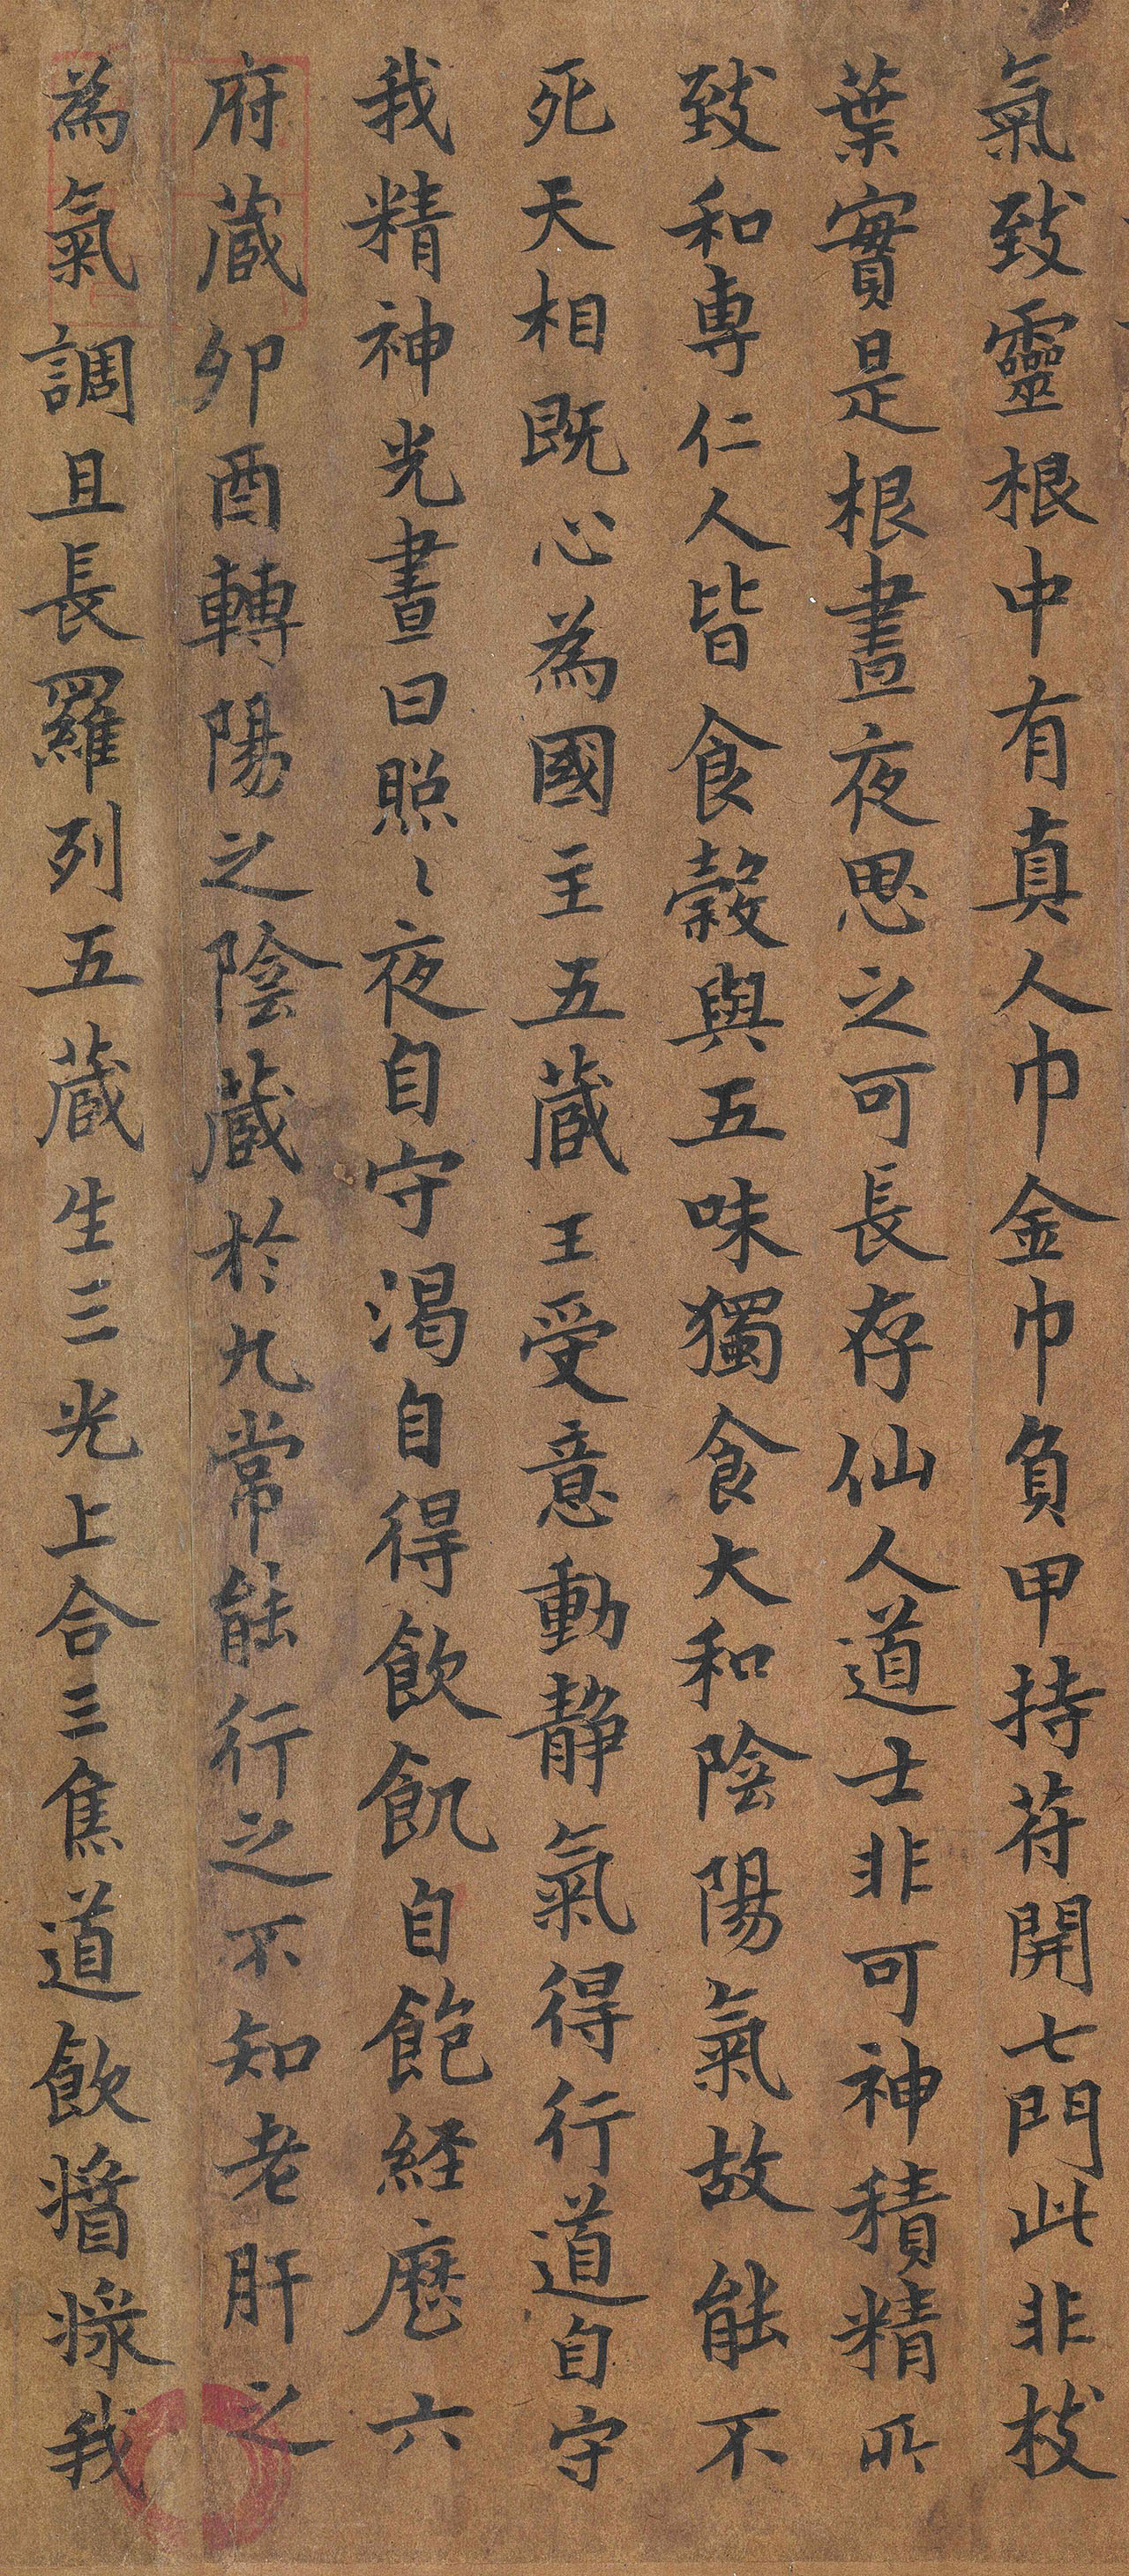 氣致靈根中有真人巾金巾負甲持苻開七門此非枝
葉實是根晝夜思之可長存仙人道士非可神積精所
致和専仁人皆食穀與五味獨食大和陰陽氣故能不
死天相既心為國主五藏王受意動静氣得行道自守
我精神光晝日照〻夜自守渴自得飲飢自飽経歷六
府藏卯酉轉陽之陰藏於九常能行之不知老肝之
為氣調且長羅列五藏生三光上合三焦道飲
我